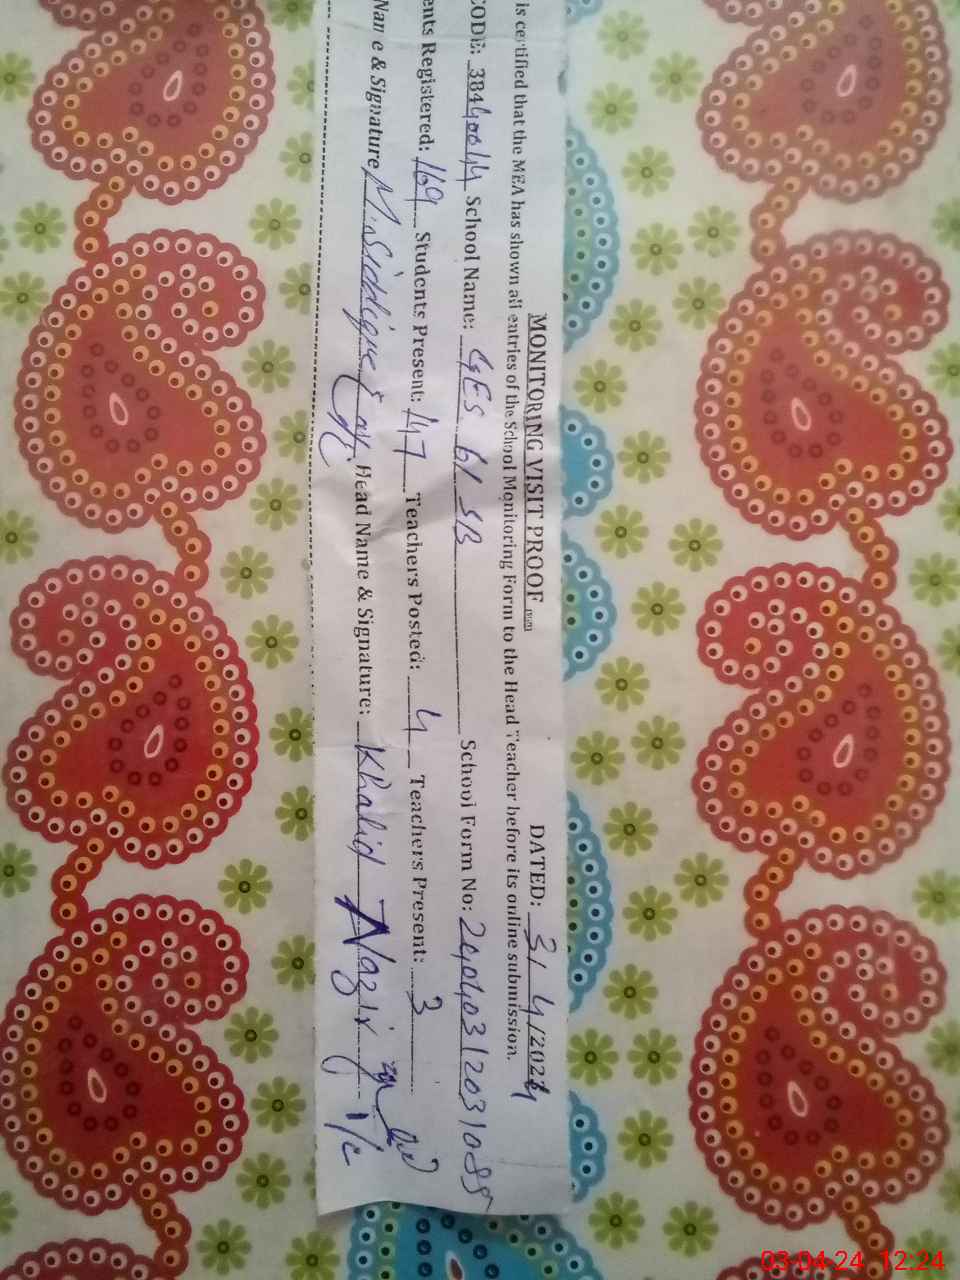 MONITORING VISIT PROOF DATED: 3/4/2024
is certified that the MEA has shown all entries of the School Monitoring Form to the Head Teacher before its online submission.
CODE: 38440044 School Name: GES 61 SB School Form No:
ents Registered: 169 Students Present: 147 Teachers Posted: 4 Teachers Present: 3
Name & Signature M. Siddique Head Name & Signature: Khalid Nazir I/c
03-04-24 12:24